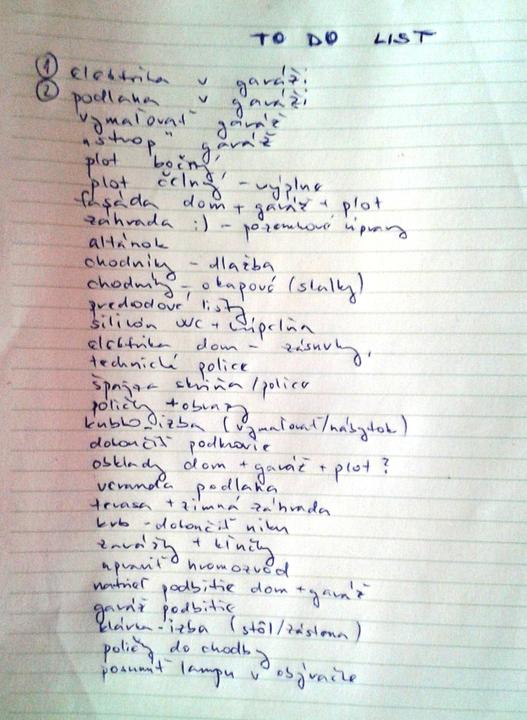 TO DO LIST
① elektrika v garáži
② podlaha v garáži
vymaľovať garáž
"strop" garáž
plot bočný
plot čelný - výplne
fasáda dom + garáž + plot
záhrada :) - pozemkové úpravy
altánok
chodníky - dlažba
chodníky - okapové (skalky)
predodové lišty
silikón WC + kúpeľňa
elektrika dom - zásuvky,
technické police
špajza skriňa/police
poličky + obrazy
kubko-izba (vymaľovať/nábytok)
dokončiť podkrovie
obklady dom + garáž + plot ?
veranda podlaha
terasa + zimná záhrada
krb - dokončiť niku
zarážky + kľučky
upraviť hromozvod
natrieť podbitie dom + garáž
garáž podbitie
klárka-izba (stôl/záslona)
poličky do chodby
posunúť lampu v obývačke